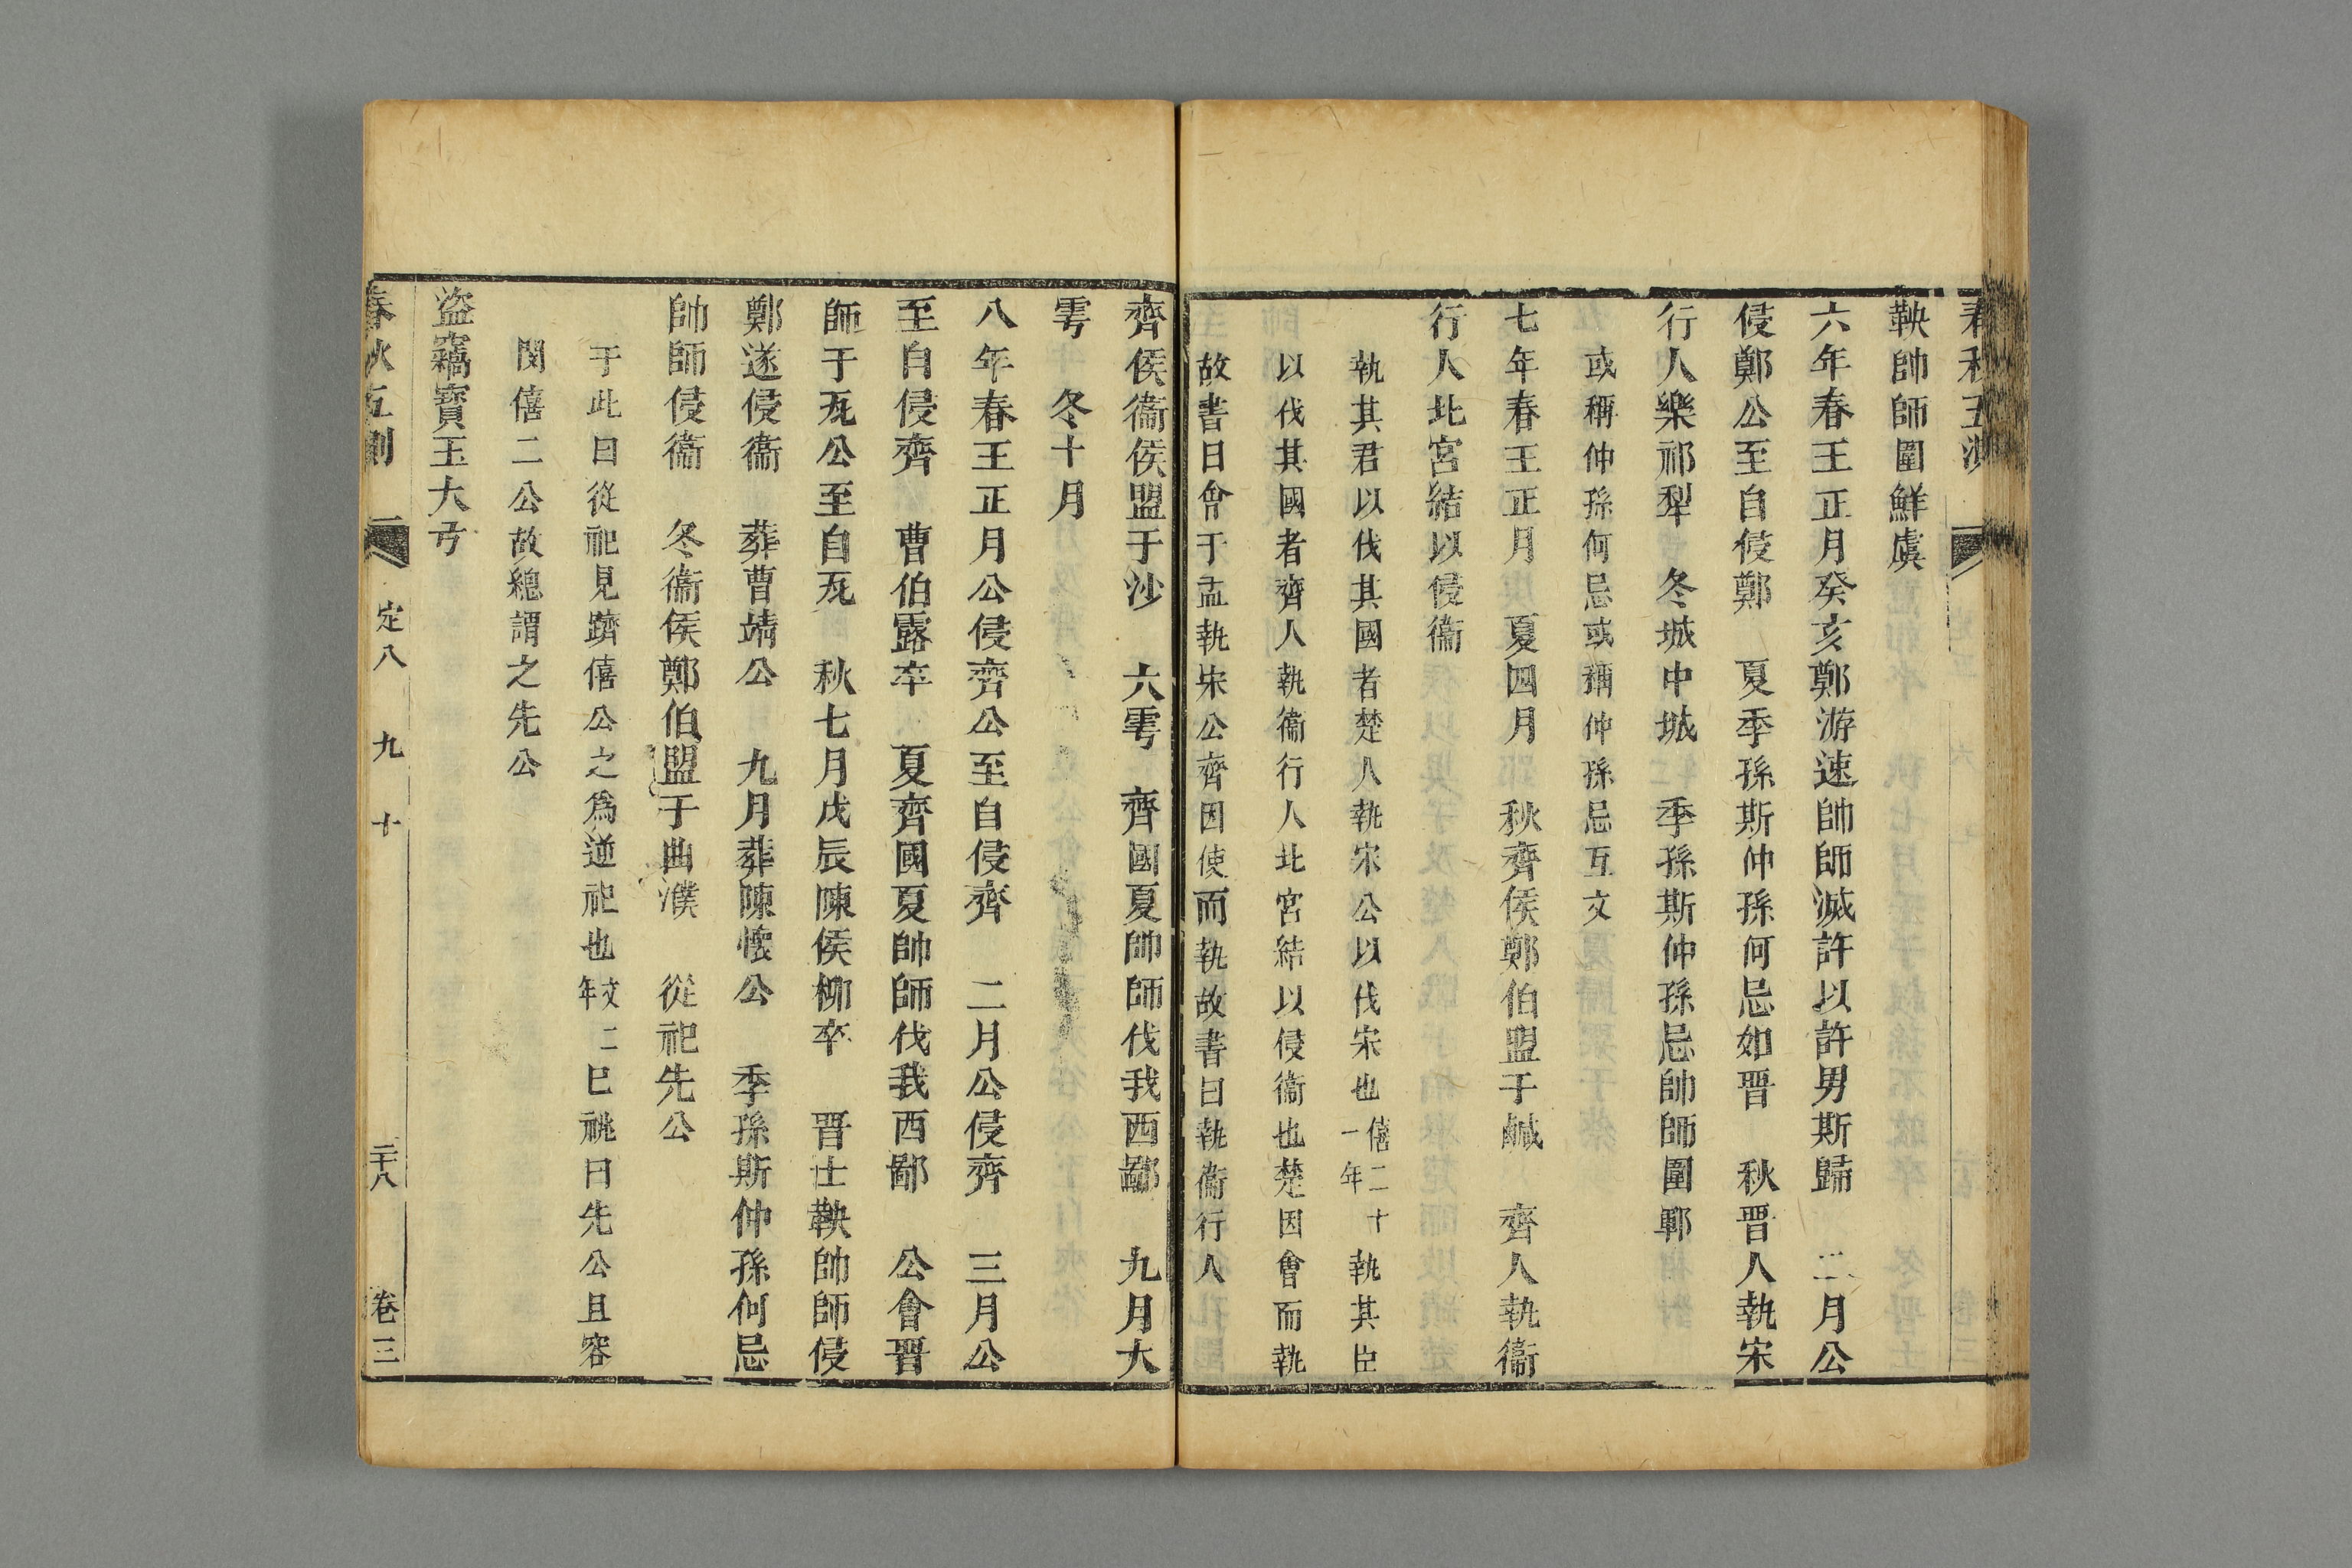 鞅帥師圍鮮虞
六年春王正月癸亥鄭游速帥師滅許以許男斯歸　二月公
侵鄭公至自侵鄭　夏季孫斯仲孫何忌如晋　秋晋人執宋
行人樂祁犁　冬城中城　季孫斯仲孫忌帥師圍鄆
或稱仲孫何忌或稱仲孫忌互文
七年春王正月　夏四月　秋齊侯鄭伯盟于鹹　齊人執衞
行人北宮結以侵衞
執其君以伐其國者楚人執宋公以伐宋也僖二十一年執其臣
以伐其國者齊人執衞行人北宮結以侵衞也楚因會而執
故書曰會于盂執宋公齊因使而執故書曰執衞行人
齊侯衞侯盟于沙　大雩　齊國夏帥師伐我西鄙　九月大
雩　冬十月
八年春王正月公侵齊公至自侵齊　二月公侵齊　三月公
至自侵齊　曹伯露卒　夏齊國夏帥師伐我西鄙　公會晋
師于瓦公至自瓦　秋七月戊辰陳侯柳卒　晋士鞅帥師侵
鄭遂侵衞　葬曹靖公　九月葬陳懷公　季孫斯仲孫何忌
帥師侵衞　冬衞侯鄭伯盟于曲濮　從祀先公
于此曰從祀見躋僖公之爲逆祀也文二年巳祧曰先公且容
閔僖二公故總謂之先公
盜竊寶玉大弓
春秋五測　定八　九　十　二十八　卷三